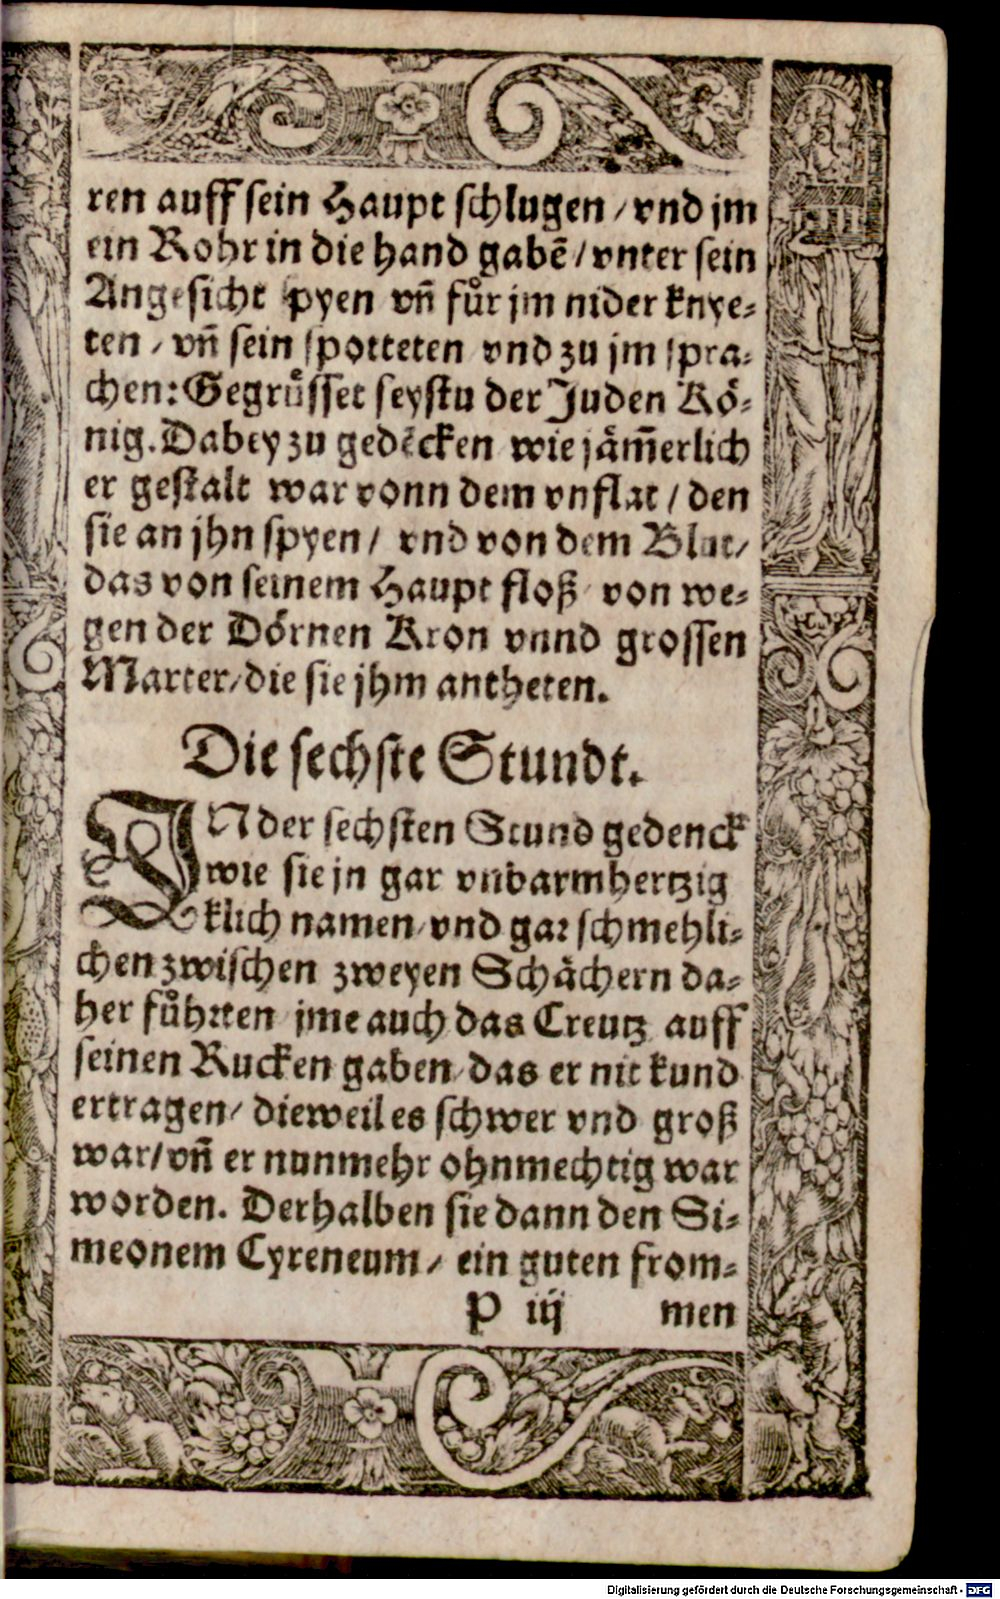 ren auff sein Haupt schlugen / vnd jm
ein Rohr in die hand gabē / vnter sein
Angesicht spyen vñ fůr jm nider knye⸗
ten / vñ sein spotteten vnd zu jm spra⸗
chen: Gegrůsset seystu der Juden Kö⸗
nig. Dabey zu gedēcken wie jäm̃erlich
er gestalt war vonn dem vnflat / den
sie an jhn spyen / vnd von dem Blut /
das von seinem Haupt floß / von we⸗
gen der Dörnen Kron vnnd grossen
Marter / die sie jhm antheten.
Die sechste Stundt.
IN der sechsten Stund gedenck
wie sie jn gar vnbarmhertzig
klich namen / vnd gar schmehli⸗
chen zwischen zweyen Schächern da⸗
her fůhrten jme auch das Creutz auff
seinen Rucken gaben / das er nit kund
ertragen / dieweil es schwer vnd groß
war / vñ er nunmehr ohnmechtig war
worden. Derhalben sie dann den Si⸗
meonem Cyreneum / ein guten from⸗
P iij men
Digitalisierung gefördert durch die Deutsche Forschungsgemeinschaft - DFG